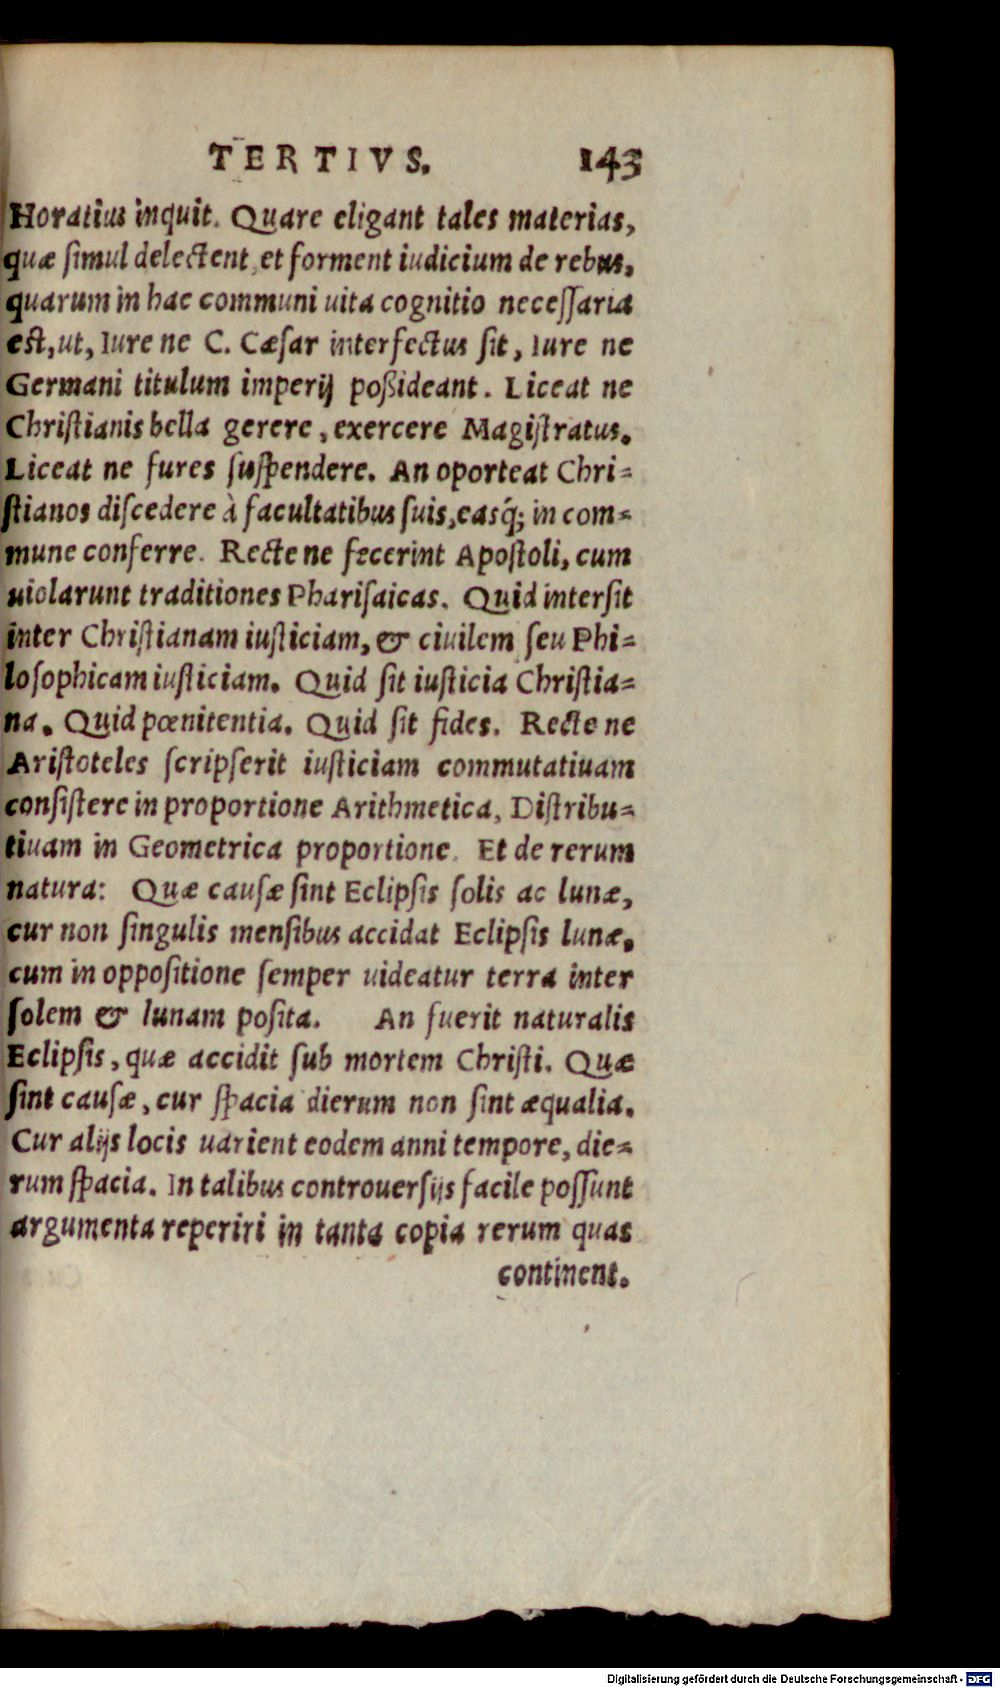 TERTIVS. 143
Horatius inquit. Quare eligant tales materias,
quæ ſimul delectent, et forment iudicium de rebus,
quarum in hac communi uita cognitio neceſſaria
eſt, ut, Iure ne C. Cæſar interfectus ſit, Iure ne
Germani titulum imperij poßideant. Liceat ne
Chriſtianis bella gerere, exercere Magiſtratus.
Liceat ne fures ſuſpendere. An oporteat Chri=
ſtianos diſcedere à facultatibus ſuis, easq́; in com=
mune conferre. Recte ne fecerint Apoſtoli, cum
uiolarunt traditiones Phariſaicas. Quid interſit
inter Chriſtianam iuſticiam, & ciuilem ſeu Phi=
loſophicam iuſticiam. Quid ſit iuſticia Chriſtia=
na. Quid pœnitentia. Quid ſit fides. Recte ne
Ariſtoteles ſcripſerit iuſticiam commutatiuam
conſiſtere in proportione Arithmetica, Diſtribu=
tiuam in Geometrica proportione. Et de rerum
natura: Quæ cauſæ ſint Eclipſis ſolis ac lunæ,
cur non ſingulis menſibus accidat Eclipſis lunæ,
cum in oppoſitione ſemper uideatur terra inter
ſolem & lunam poſita. An fuerit naturalis
Eclipſis, quæ accidit ſub mortem Chriſti. Quæ
ſint cauſæ, cur ſpacia dierum non ſint æqualia.
Cur alijs locis uarient eodem anni tempore, die=
rum ſpacia. In talibus controuerſijs facile poſſunt
argumenta reperiri in tanta copia rerum quas
continent.
Digitalisierung gefördert durch die Deutsche Forschungsgemeinschaft - DFG